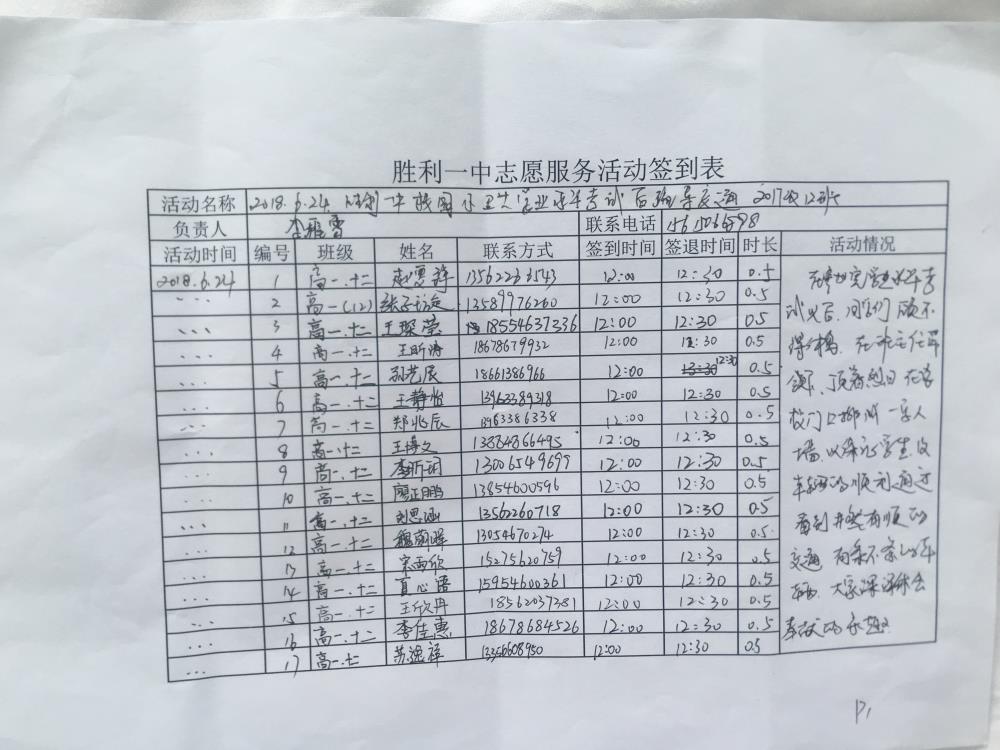 胜利一中志愿服务活动签到表
活动名称 2018.6.24. 胜利一中校园 学业水平考试后 交通 2017级12班
负责人 李雅雪 联系电话
活动时间 编号 班级 姓名 联系方式 签到时间 签退时间 时长 活动情况
2018.6.24 1 高一.十二 13562263543 12:00 12:30 0.5
... 2 高一(12) 13589976260 12:00 12:30 0.5
... 3 高一.十二 王琛荣 18554637336 12:00 12:30 0.5
... 4 高一.十二 王昕涛 18678679932 12:00 12:30 0.5
... 5 高一.十二 孙艺辰 18661386966 12:00 12:30 0.5
... 6 高一.十二 王静怡 13963389318 12:00 12:30 0.5
... 7 高一.十二 郑兆辰 13963386338 12:00 12:30 0.5
... 8 高一.十二 王博文 13884866495 12:00 12:30 0.5
... 9 高一.十二 李昕玥 13006549699 12:00 12:30 0.5
... 10 高一.十二 廖正鹏 13854600596 12:00 12:30 0.5
... 11 高一.十二 刘思涵 13562260718 12:00 12:30 0.5
... 12 高一.十二 13054670274 12:00 12:30 0.5
... 13 高一.十二 宋雨欣 15275620759 12:00 12:30 0.5
... 14 高一.十二 夏心语 15954600361 12:00 12:30 0.5
... 15 高一.十二 王欣丹 18562037381 12:00 12:30 0.5
... 16 高一.十二 李佳惠 18678684526 12:00 12:30 0.5
... 17 高一.七 苏逸祥 13356608950 12:00 12:30 0.5
学业水平考
试以后,同学们顾不
得 ,在班主任
顶着烈日在学
校门口 一字人
墙,以保证学生及
车辆的顺利通过
看到井然有顺的
交通 有条不紊的车
辆,大家深深体会
奉献的乐趣。
P1